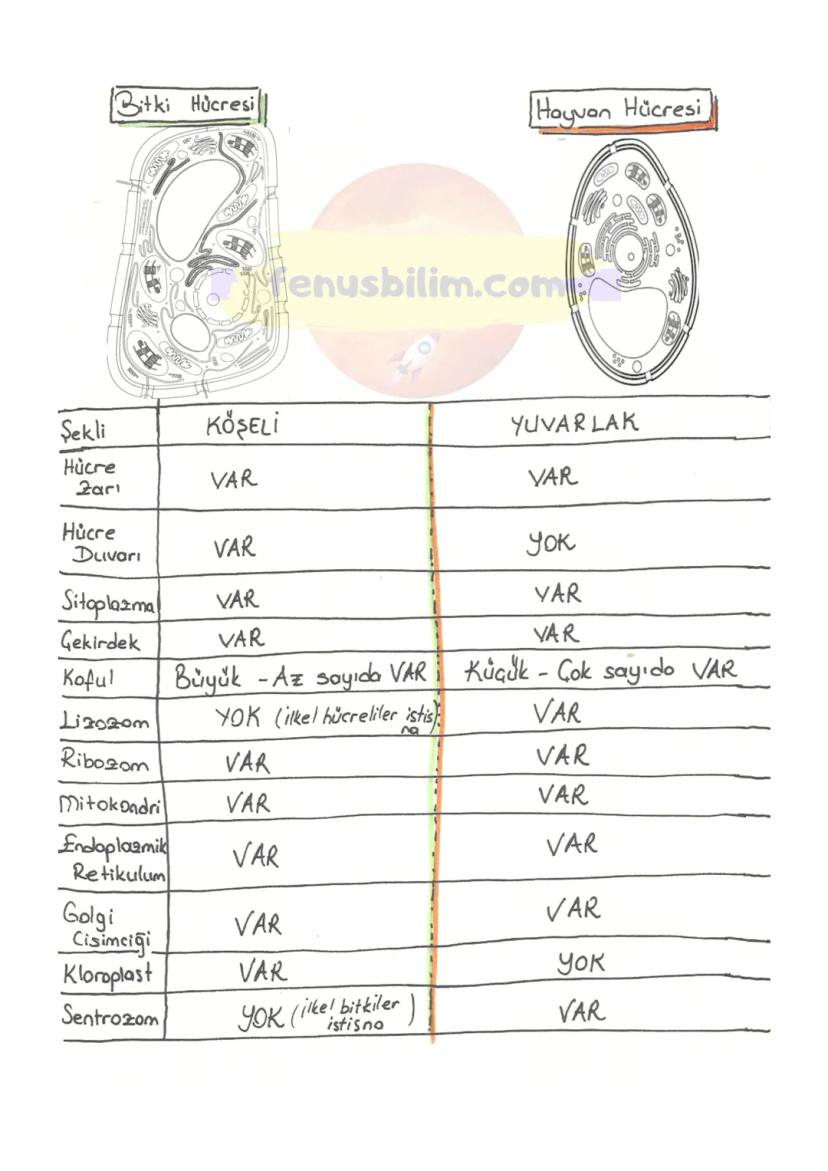 Bitki Hücresi
Hayvan Hücresi
fenusbilim.com
Şekli KÖŞELİ YUVARLAK
Hücre
Zarı VAR VAR
Hücre
Duvarı VAR YOK
Sitoplazma VAR VAR
Çekirdek VAR VAR
Koful Büyük - Az sayıda VAR Küçük - Çok sayıda VAR
Lizozom YOK (ilkel hücreliler istis
na)
VAR
Ribozom VAR VAR
Mitokondri VAR VAR
Endoplazmik
Retikulum VAR VAR
Golgi
Cisimciği VAR VAR
Kloroplast VAR YOK
Sentrozom YOK (ilkel bitkiler
istisna)
VAR